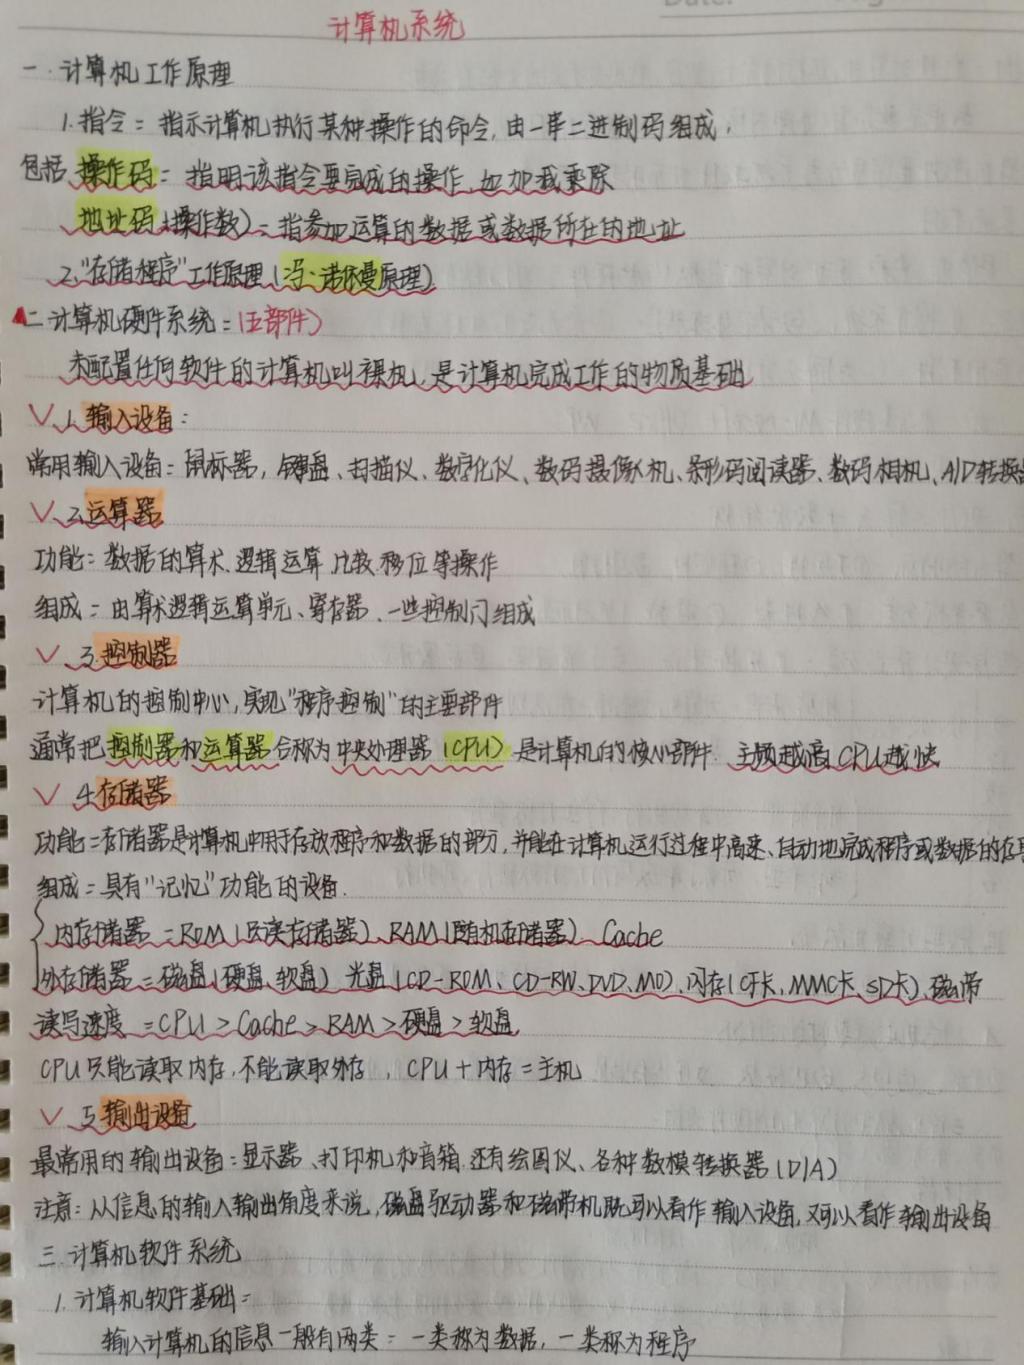 计算机系统
一.计算机工作原理
1.指令:指示计算机执行某种操作的命令,由一串二进制码组成.
包括操作码:指明该指令要完成的操作,如加减乘除
地址码(操作数):指参加运算的数据或数据所在的地址
2."存储程序"工作原理(冯·诺依曼原理)
二计算机硬件系统:(五部件)
未配置任何软件的计算机叫裸机,是计算机完成工作的物质基础
1.输入设备:
常用输入设备:鼠标器,键盘、扫描仪、数字化仪、数码摄像机、条形码阅读器、数码相机、A/D转换
2.运算器
功能:数据的算术.逻辑运算 比较.移位等操作
组成:由算术逻辑运算单元、寄存器、一些控制门组成
3.控制器
计算机的控制中心,实现"程序控制"的主要部件
通常把控制器和运算器合称为中央处理器(CPU) 是计算机的核心部件. 主频越高CPU越快
4.存储器
功能:存储器是计算机中用于存放程序和数据的部分,并能在计算机运行过程中高速、自动地完成程序或数据的存
组成:具有"记忆"功能的设备.
内存储器:ROM(只读存储器)、RAM(随机存储器)、Cache
外存储器:磁盘(硬盘、软盘) 光盘(CD-ROM、CD-RW、DVD、MO)、闪存(CF卡、MMC卡、SD卡)、磁带
读写速度:CPU>Cache>RAM>硬盘>软盘
CPU只能读取内存,不能读取外存, CPU+内存=主机
5输出设备
最常用的输出设备:显示器、打印机和音箱.还有绘图仪、各种数模转换器(D/A)
注意:从信息的输入输出角度来说,磁盘驱动器和磁带机既可以看作输入设备,又可以看作输出设备
三.计算机软件系统
1.计算机软件基础:
输入计算机的信息一般有两类:一类称为数据,一类称为程序